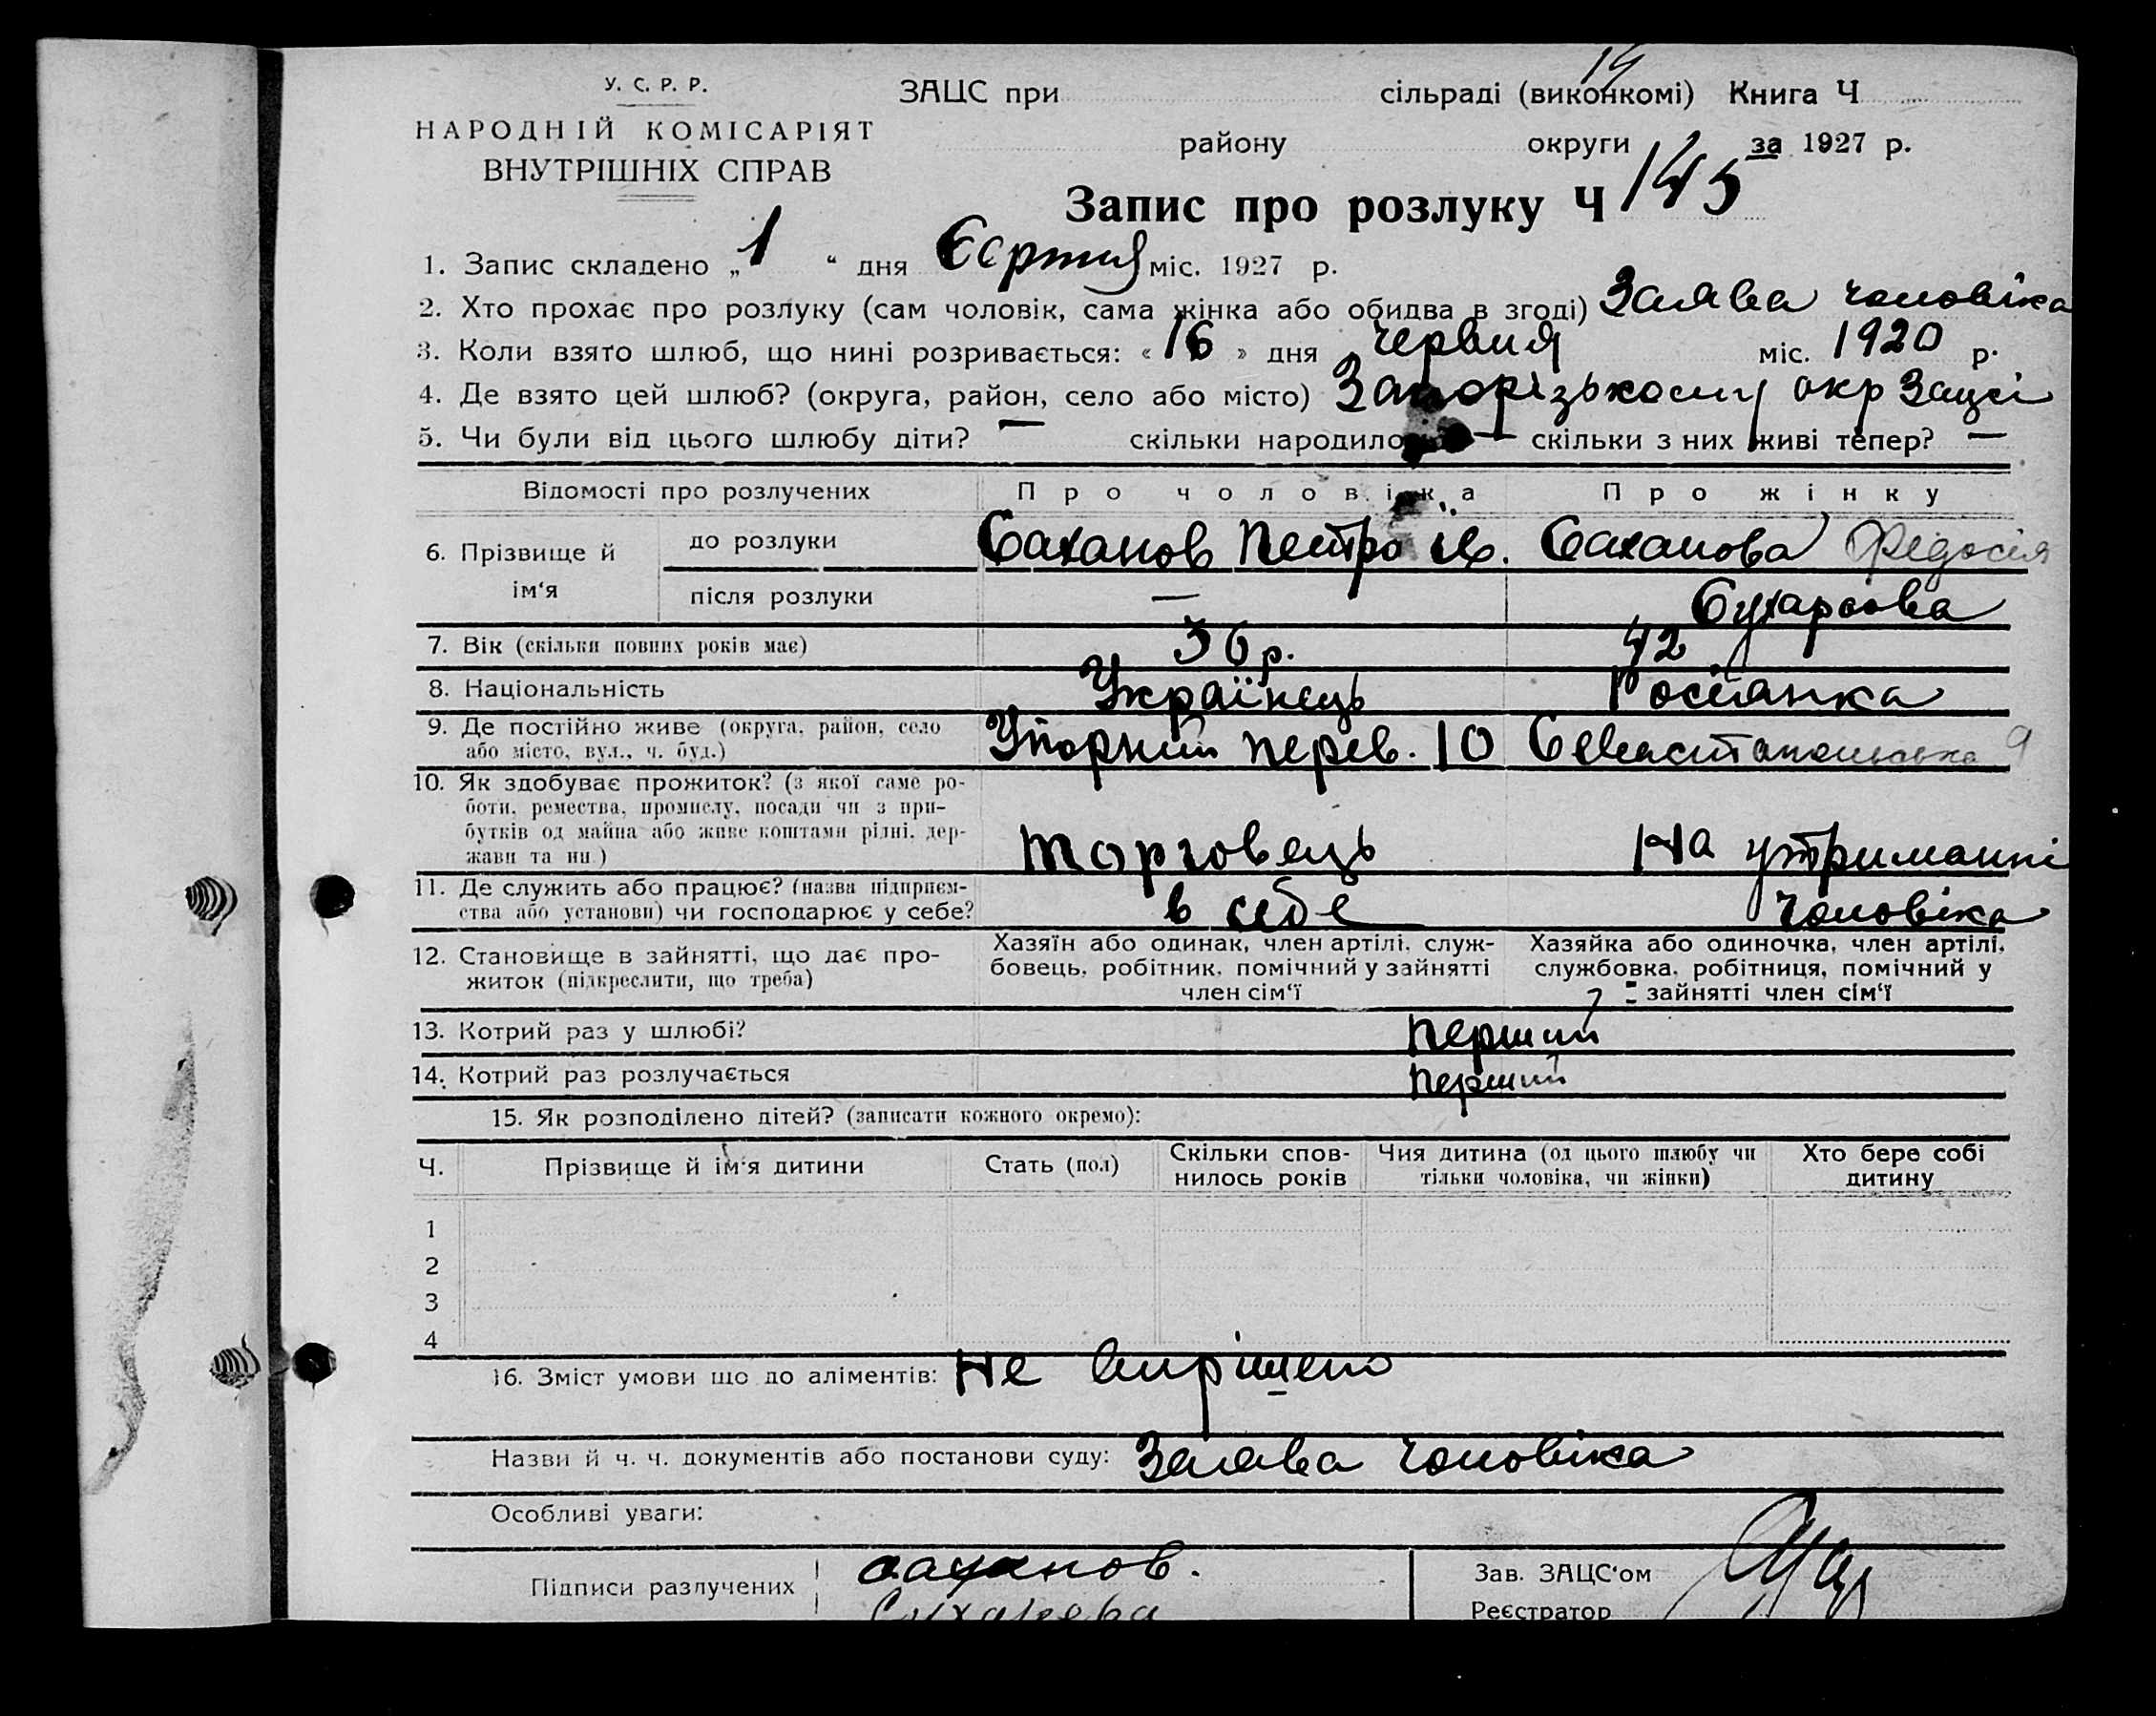 14
У. С. Р. Р.
ЗАЦС при сільраді (виконкомі) Книга Ч
НАРОДНІЙ КОМІСАРІЯТ
ВНУТРІШНІХ СПРАВ
району округи за 1927 р.
Запис про розлуку Ч 145
1. Запис складено „1“ дня Серпня міс. 1927 р.
2. Хто прохає про розлуку (сам чоловік, сама жінка або обидва в згоді) Заява чоловіка
3. Коли взято шлюб, що нині розривається: «16» дня червня міс. 1920 р.
4. Де взято цей шлюб? (округа, район, село або місто) Запорізькому окр Зацсі
5. Чи були від цього шлюбу діти? — скільки народило — скільки з них живі тепер? —
Відомості про розлучених Про чоловіка Про жінку
6. Прізвище й ім‘я
до розлуки Саханов Петро Ів. Саханова Федосія
після розлуки — Сухарєова
7. Вік (скільки повних років має) 36 р. 42
8. Національність Українець Росіянка
9. Де постійно живе (округа, район, село
або місто, вул., ч. буд.) Упорний перев. 10 Севастопольська 9
10. Як здобуває прожиток? (з якої саме ро-
боти, ремества, промислу, посади чи з при-
бутків од майна або живе коштами рідні, дер-
жави та ин.) торговець На утриманні
11. Де служить або працює? (назва підприєм-
ства або установи) чи господарює у себе? в себе чоловіка
12. Становище в зайнятті, що дає про-
житок (підкреслити, що треба)
Хазяїн або одинак, член артілі, служ-
бовець, робітник, помічний у зайнятті
член сім‘ї
Хазяйка або одиночка, член артілі,
службовка, робітниця, помічний у
зайнятті член сім‘ї
13. Котрий раз у шлюбі? перший
14. Котрий раз розлучається перший
15. Як розподілено дітей? (записати кожного окремо):
Ч. Прізвище й ім‘я дитини Стать (пол) Скільки спов-
нилось років Чия дитина (од цього шлюбу чи
тільки чоловіка, чи жінки) Хто бере собі
дитину
1
2
3
4
16. Зміст умови що до аліментів: Не вирішено
Назви й ч. ч. документів або постанови суду: Заява чоловіка
Особливі уваги:
Підписи разлучених саханов.
Сухарева
Зав. ЗАЦС‘ом
Реєстратор